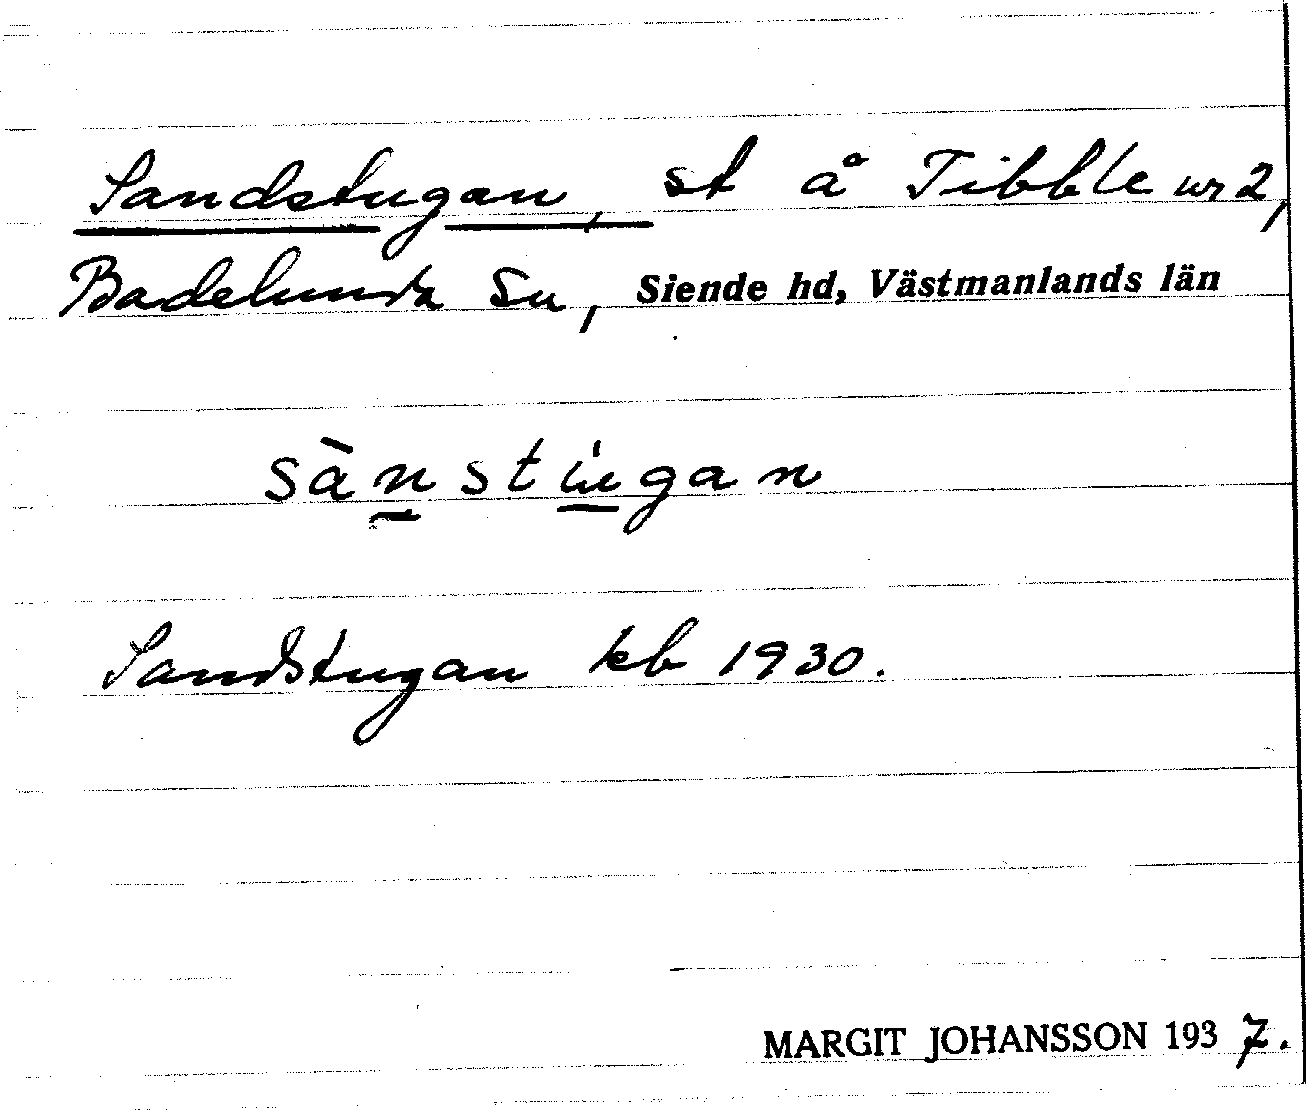 Sandstugan, st å Tibble nr 2,
Badelunda Sn, Siende hd, Västmanlands län
sànstu̇gan
Sandstugan kb 1930.
MARGIT JOHANSSON 1937.